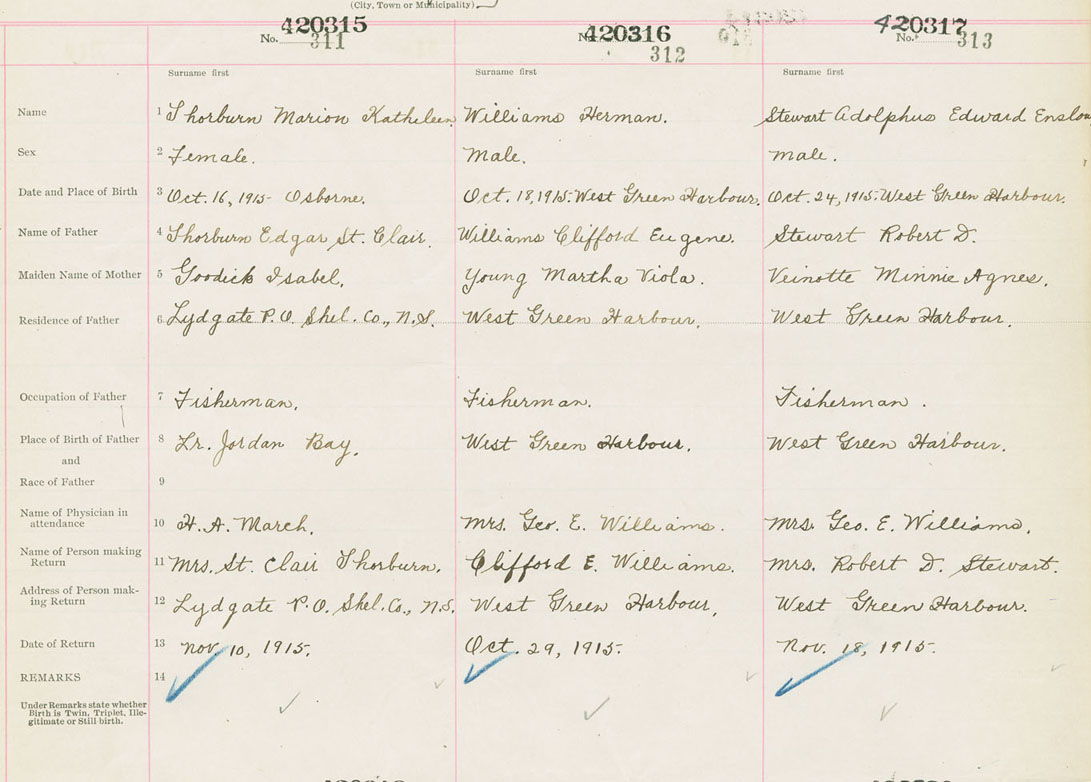 (City, Town or Municipality)
420315 420316 420317
No. 311 No. 312 No. 313
Surname first Surname first Surname first
Name 1 Thorburn Marion Kathileen Williams Herman. Stewart Adolphus Edward Enslow
Sex 2 Female. Male. Male.
Date and Place of Birth 3 Oct. 16, 1915- Osborne. Oct. 18, 1915. West Green Harbour. Oct. 24, 1915. West Green Harbour.
Name of Father 4 Thorburn Edgar St. Clair. Williams Clifford Eugene. Stewart Robert D.
Maiden Name of Mother 5 Goodick Isabel. Young Martha Viola. Veinotte Minnie Agnes.
Residence of Father 6 Lydgate P.O. Shel. Co., N.S. West Green Harbour. West Green Harbour.
Occupation of Father 7 Fisherman. Fisherman. Fisherman.
Place of Birth of Father 8 Lr. Jordan Bay. West Green Harbour. West Green Harbour.
and
Race of Father 9
Name of Physician in
attendance 10 H. A. March. Mrs. Geo. E. Williams. Mrs. Geo. E. Williams.
Name of Person making
Return 11 Mrs. St. Clair Thorburn. Clifford E. Williams. Mrs. Robert D. Stewart.
Address of Person mak-
ing Return 12 Lydgate P.O. Shel. Co., N.S. West Green Harbour, West Green Harbour.
Date of Return 13 Nov. 10, 1915. Oct. 29, 1915. Nov. 18, 1915.
REMARKS 14
Under Remarks state whether
Birth is Twin, Triplet, Ille-
gitimate or Still birth.